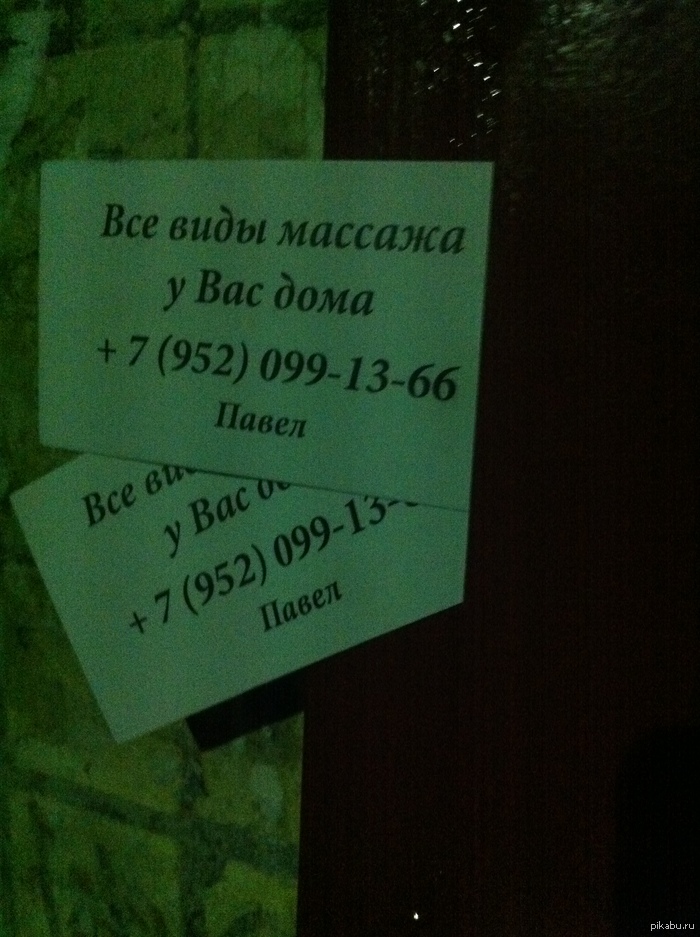 Все виды массажа
у Вас дома
+ 7 (952) 099-13-66
Павел
Все ви
у Вас
+ 7 (952) 099-13-
Павел
pikabu.ru